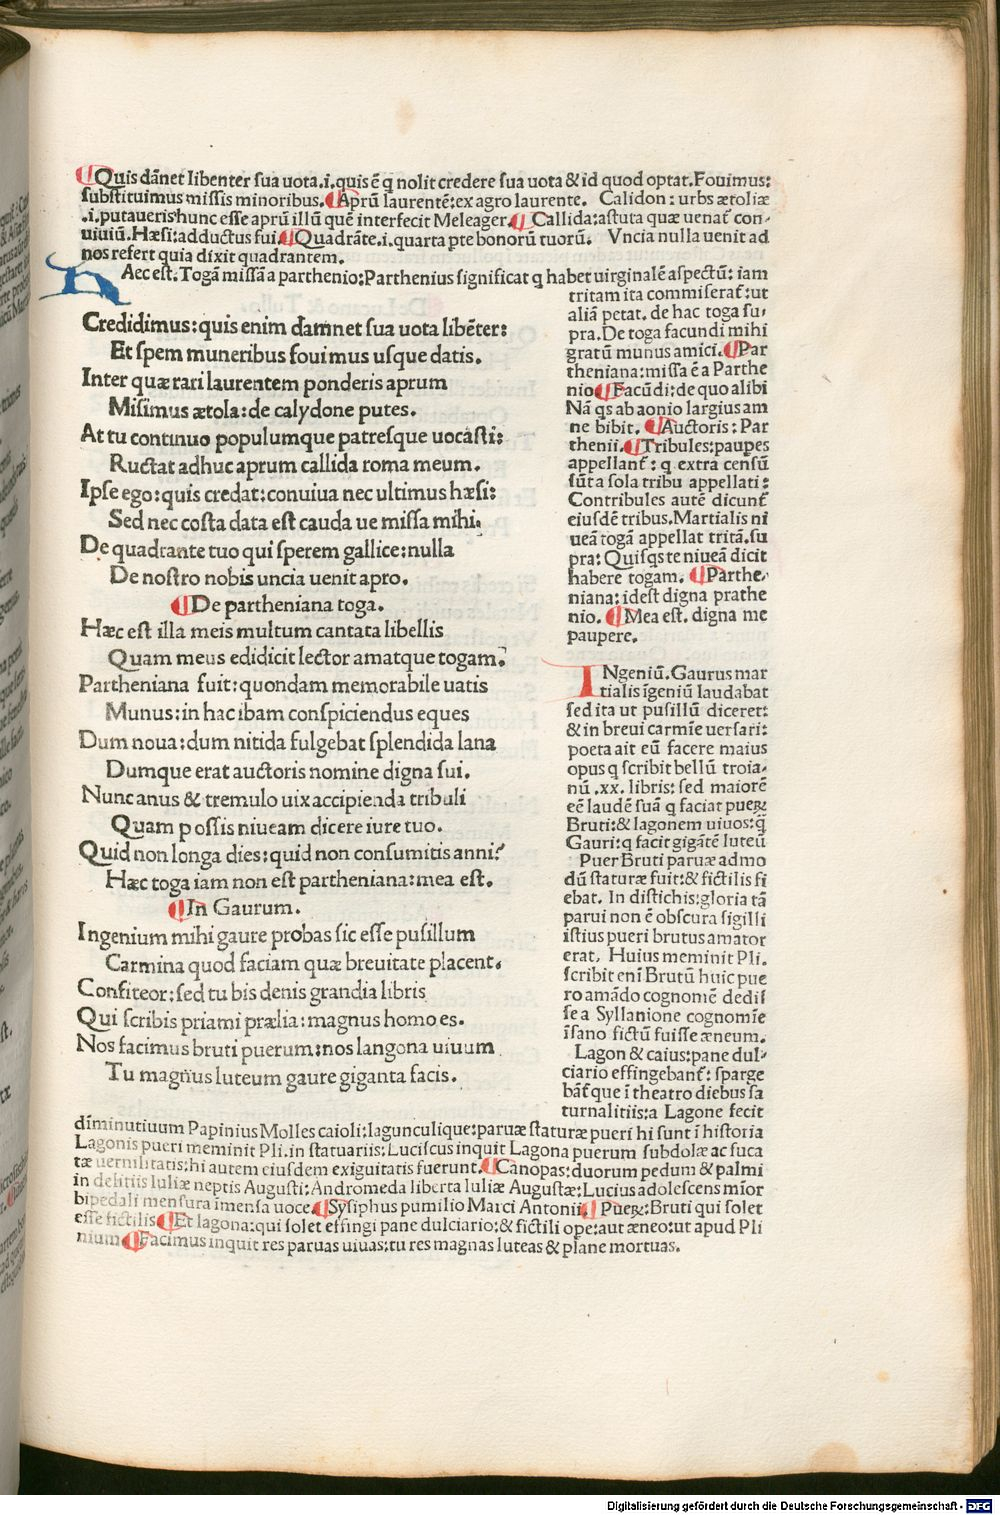 ¶Quis dãnet libenter sua uota.i.quis ē q nolit credere sua uota & id quod optat.Fouimus:
substituimus missis minoribus.¶Aprū laurentē:ex agro laurente. Calidon: urbs ætoliæ
.i.putaueris hunc esse aprū illū quē interfecit Meleager.¶ Callida:astuta quæ uenat̃ con-
uiuiū.Hæsi:adductus sui.¶Quadrãte.i.quarta pte bonorū tuorū. Vncia nulla uenit ad
nos refert quia dixit quadrantem.
HAec est. Togã missã a parthenio:Parthenius significat q habet uirginalē aspectū: iam
tritam ita commiserat̃:ut
aliã petat. de hac toga su-
pra.De toga facundi mihi
gratū munus amici.¶Par
theniana:missa ē a Parthe
nio¶Facūdi:de quo alibi
Nã qs ab aonio largius am
ne bibit. ¶Auctoris: Par
thenii.¶Tribules:paupes
appellant̃: q extra censū
sūt a sola tribu appellati:
Contribules autē dicunt̃
eiusdē tribus.Martialis ni
ueã togã appellat tritã.su
pra: Quisqs te niueã dicit
habere togam. ¶Parthe-
niana:idest digna prathe
nio. ¶Mea est. digna me
paupere.
Credidimus:quis enim damnet sua uota libēter:
Et spem muneribus fouimus usque datis.
Inter quæ rari laurentem ponderis aprum
Misimus ætola:de calydone putes.
At tu continuo populumque patresque uocasti:
Ructat adhuc aprum callida roma meum.
Ipse ego:quis credat:conuiua nec ultimus hæsi:
Sed nec costa data est cauda ue missa mihi.
De quadrante tuo qui sperem gallice:nulla
De nostro nobis uncia uenit apro.
¶De partheniana toga.
Hæc est illa meis multum cantata libellis
Quam meus edidicit lector amatque togam.
Partheniana fuit:quondam memorabile uatis
Munus:in hac ibam conspiciendus eques
Dum noua:dum nitida fulgebat splendida lana
Dumque erat auctoris nomine digna sui.
Nunc anus & tremulo uix accipienda tribuli
Quam possis niueam dicere iure tuo.
Quid non longa dies:quid non consumitis anni?
Hæc toga iam non est partheniana:mea est.
¶In Gaurum.
Ingenium mihi gaure probas sic esse pusillum
Carmina quod faciam quæ breuitate placent.
Confiteor:sed tu bis denis grandia libris
Qui scribis priami prælia:magnus homo es.
Nos facimus bruti puerum:nos langona uiuum
Tu magnus luteum gaure giganta facis.
INgeniū.Gaurus mar
tialis īgeniū laudabat
sed ita ut pusillū diceret:
& in breui carmīe uersari:
poeta ait eū facere maius
opus q scribit bellū troia-
nū .xx. libris: sed maiorē
eē laudē suã q faciat pueꝝ
Bruti:& lagonem uiuos:q̃
Gauri:q facit gigãtē luteū
Puer Bruti paruæ admo
dū staturæ fuit:& fictilis fi
ebat. In distichis:gloria tã
parui non ē obscura sigilli
istius pueri brutus amator
erat. Huius meminit Pli.
scribit enī Brutū huic pue
ro amãdo cognomē dedis
se a Syllanione cognomīe
īsano fictū fuisse æneum.
Lagon & caius:pane dul-
ciario effingebant̃: sparge
bãt̃que ī theatro diebus sa
turnalitiis:a Lagone fecit
dīminutiuum Papinius Molles caioli:lagunculique:paruæ staturæ pueri hi sunt ī historia
Lagonis pueri meminit Pli.in statuariis:Luciscus inquit Lagona puerum subdolæ ac fuca
tæ uernilitatis:hi autem eiusdem exiguitatis fuerunt.¶Canopas:duorum pedum & palmi
in delitiis Iuliæ neptis Augusti:Andromeda liberta Iuliæ Augustæ:Lucius adolescens mīor
bipedali mensura imensa uoce.¶Sysiphus pumilio Marci Antonii.¶ Pueꝝ:Bruti qui solet
esse fictilis¶Et lagona:qui solet effingi pane dulciario:& fictili ope:aut æneo:ut apud Pli
nium¶Facimus inquit res paruas uiuas:tu res magnas luteas & plane mortuas.
Digitalisierung gefördert durch die Deutsche Forschungsgemeinschaft - DFG